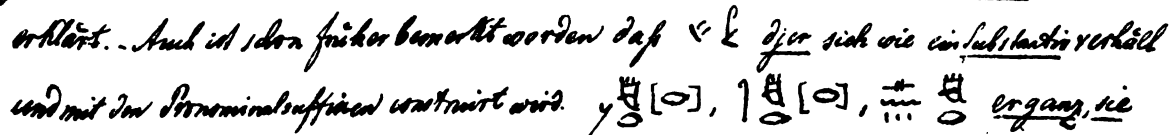 erklärt. - Auch ist schon früher bemerkt worden daß djer sich wie ein Substantiv verhält
und mit den Pronominalsuffixen construirt wird. [𓂋], [𓂋], er ganz, sie